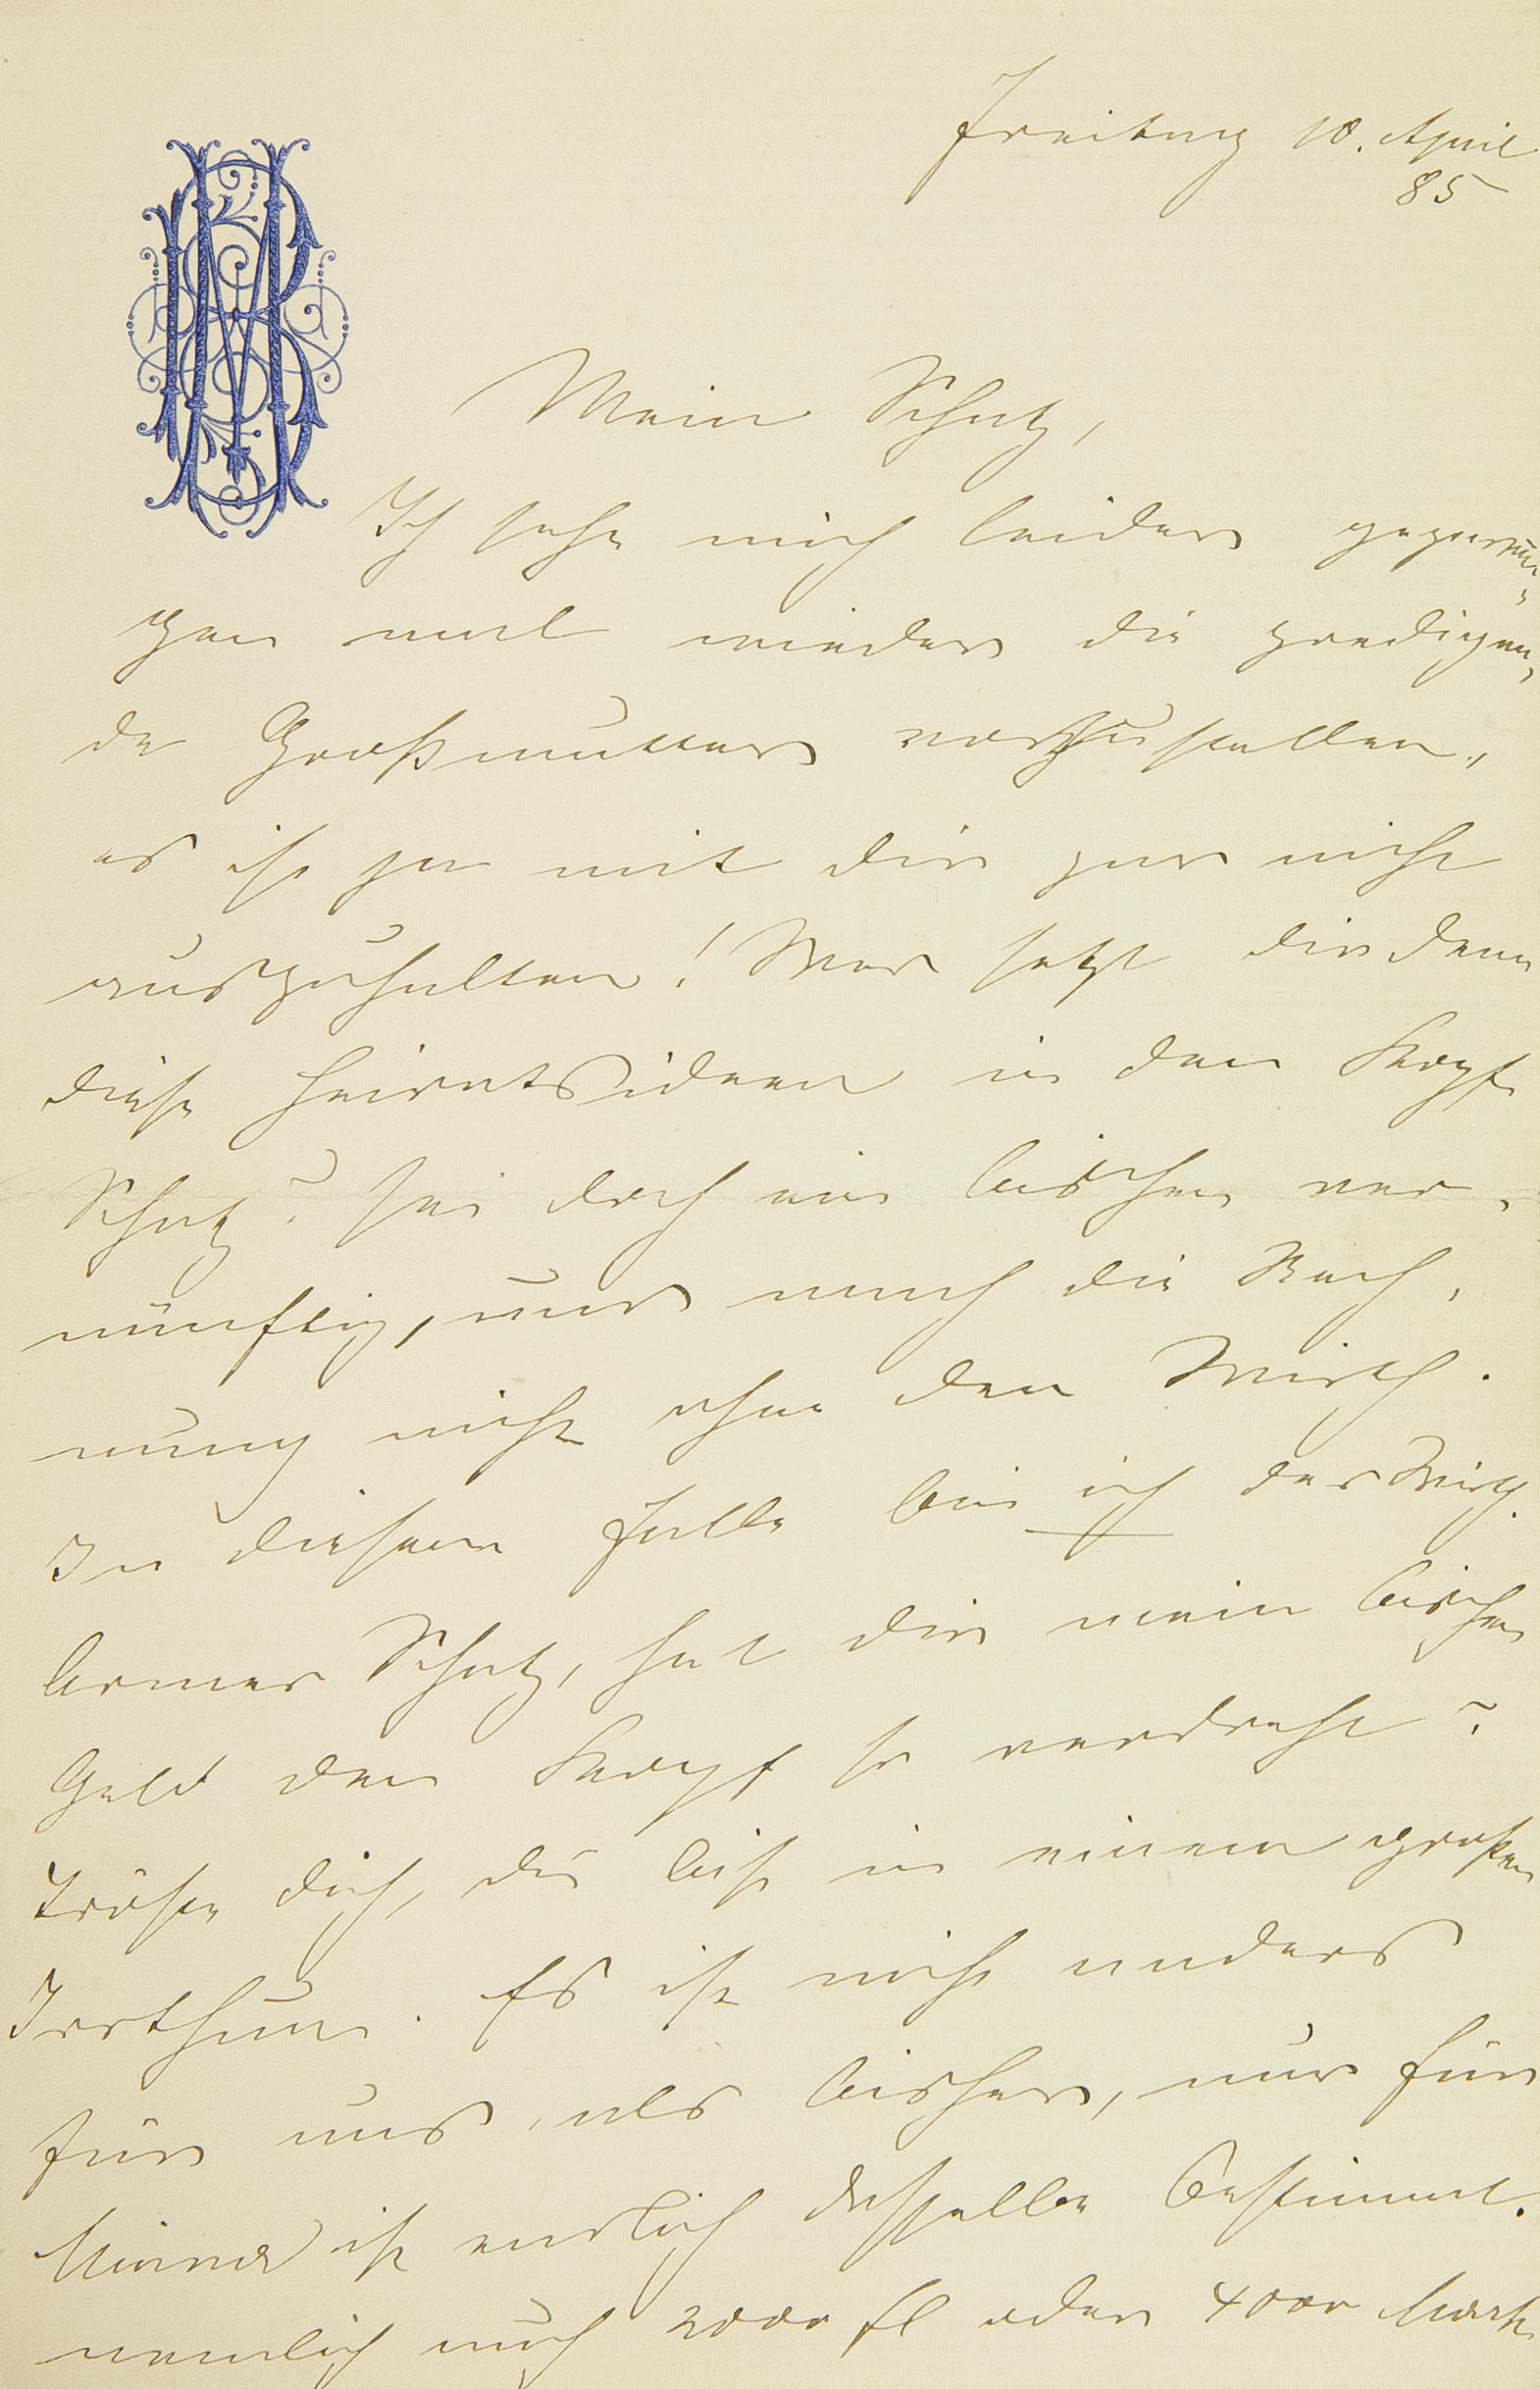 Freitag 10. April
85
Mein Schatz,
Ich sehe mich leider gezwun-
gen mal wieder die predigen-
de Großmutter vorzustellen,
es ist ja mit dir gar nicht
auszuhalten! Wer setzt dir denn
diese Heiratsideen in den Kopf
Schatz? sei doch ein bischen ver-
nünftig, und mach die Rech-
nung nicht ohne den Wirth.
In diesem Falle bin ich der Wirth.
Armer Schatz, hat dir mein bischen
Geld den Kopf so verdreht?
Tröste dich, du bist in einem großen
Irrthum. Es ist nicht anders
für uns, als bisher, nur für
Minna ist endlich dasselbe bestimmt.
nemlich auch 2000 fl oder 4000 Mark